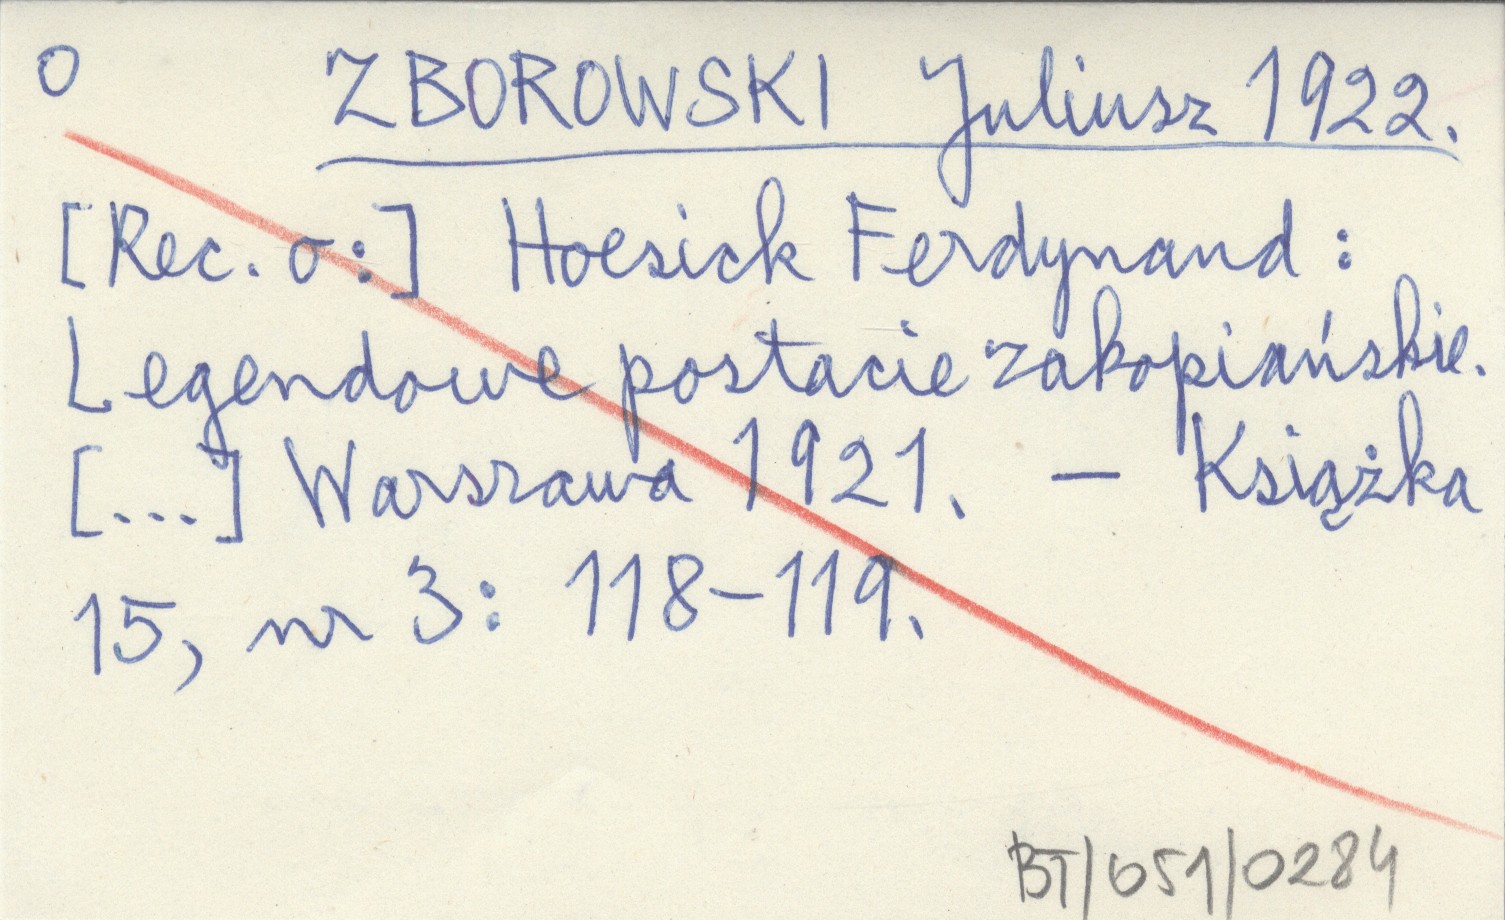 O ZBOROWSKI Juliusz 1922.
[Rec. o:] Hoesick Ferdynand:
Legendowe postacie zakopiańskie.
[...] Warszawa 1921. – Książka
15, nr 3: 118–119.
BT/051/0284